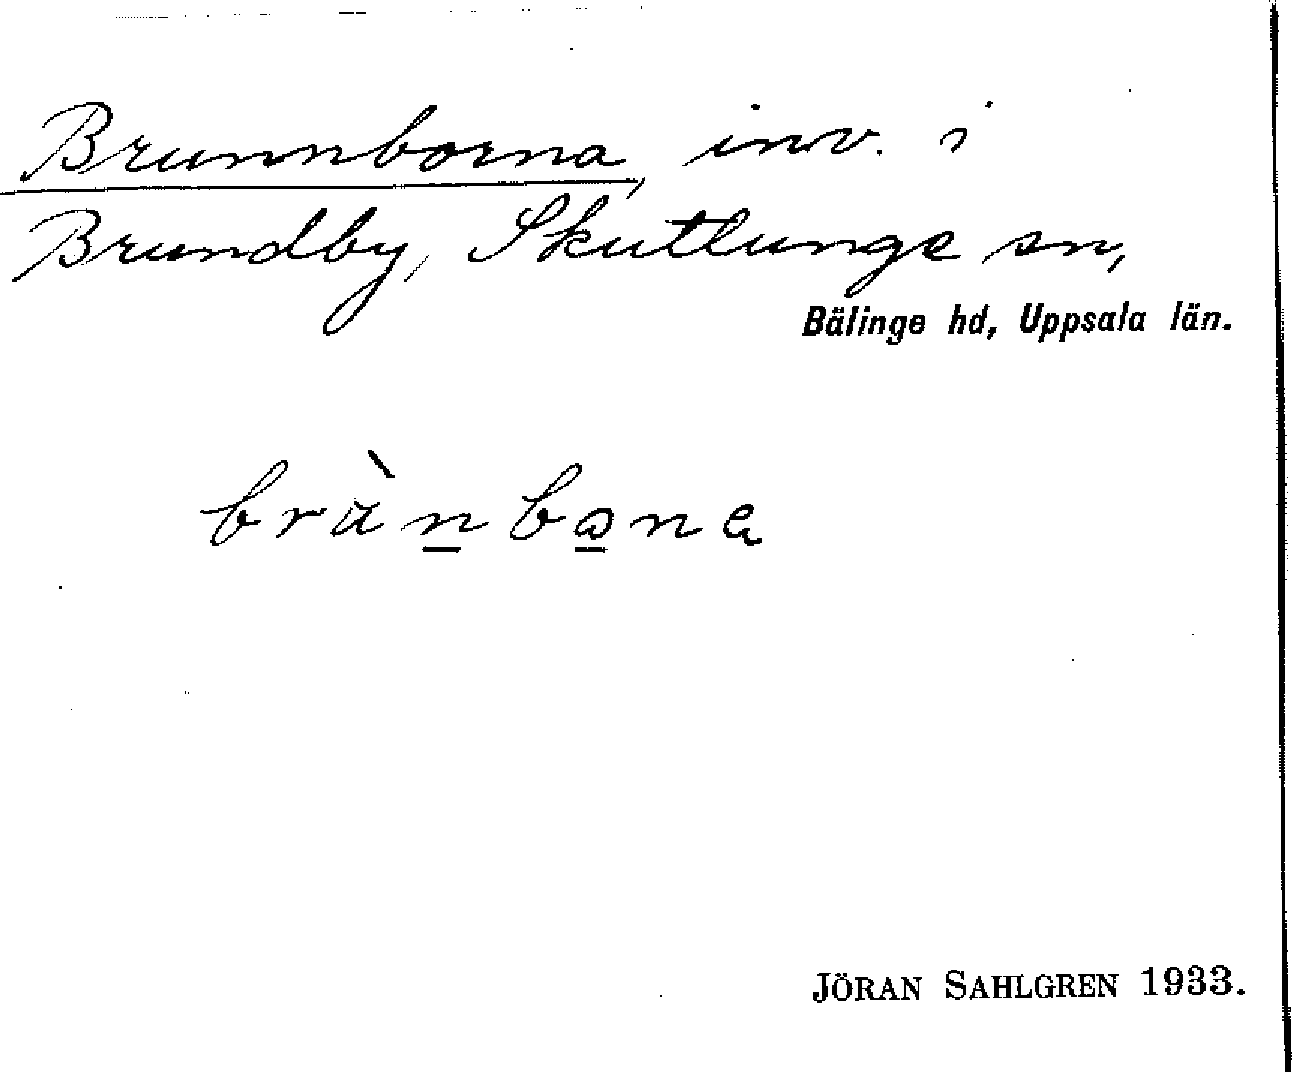 Brunnborna, inv. i
Brundby, Skuttunge sn,
Bälinge hd, Uppsala län.
JÖRAN SAHLGREN 1933.